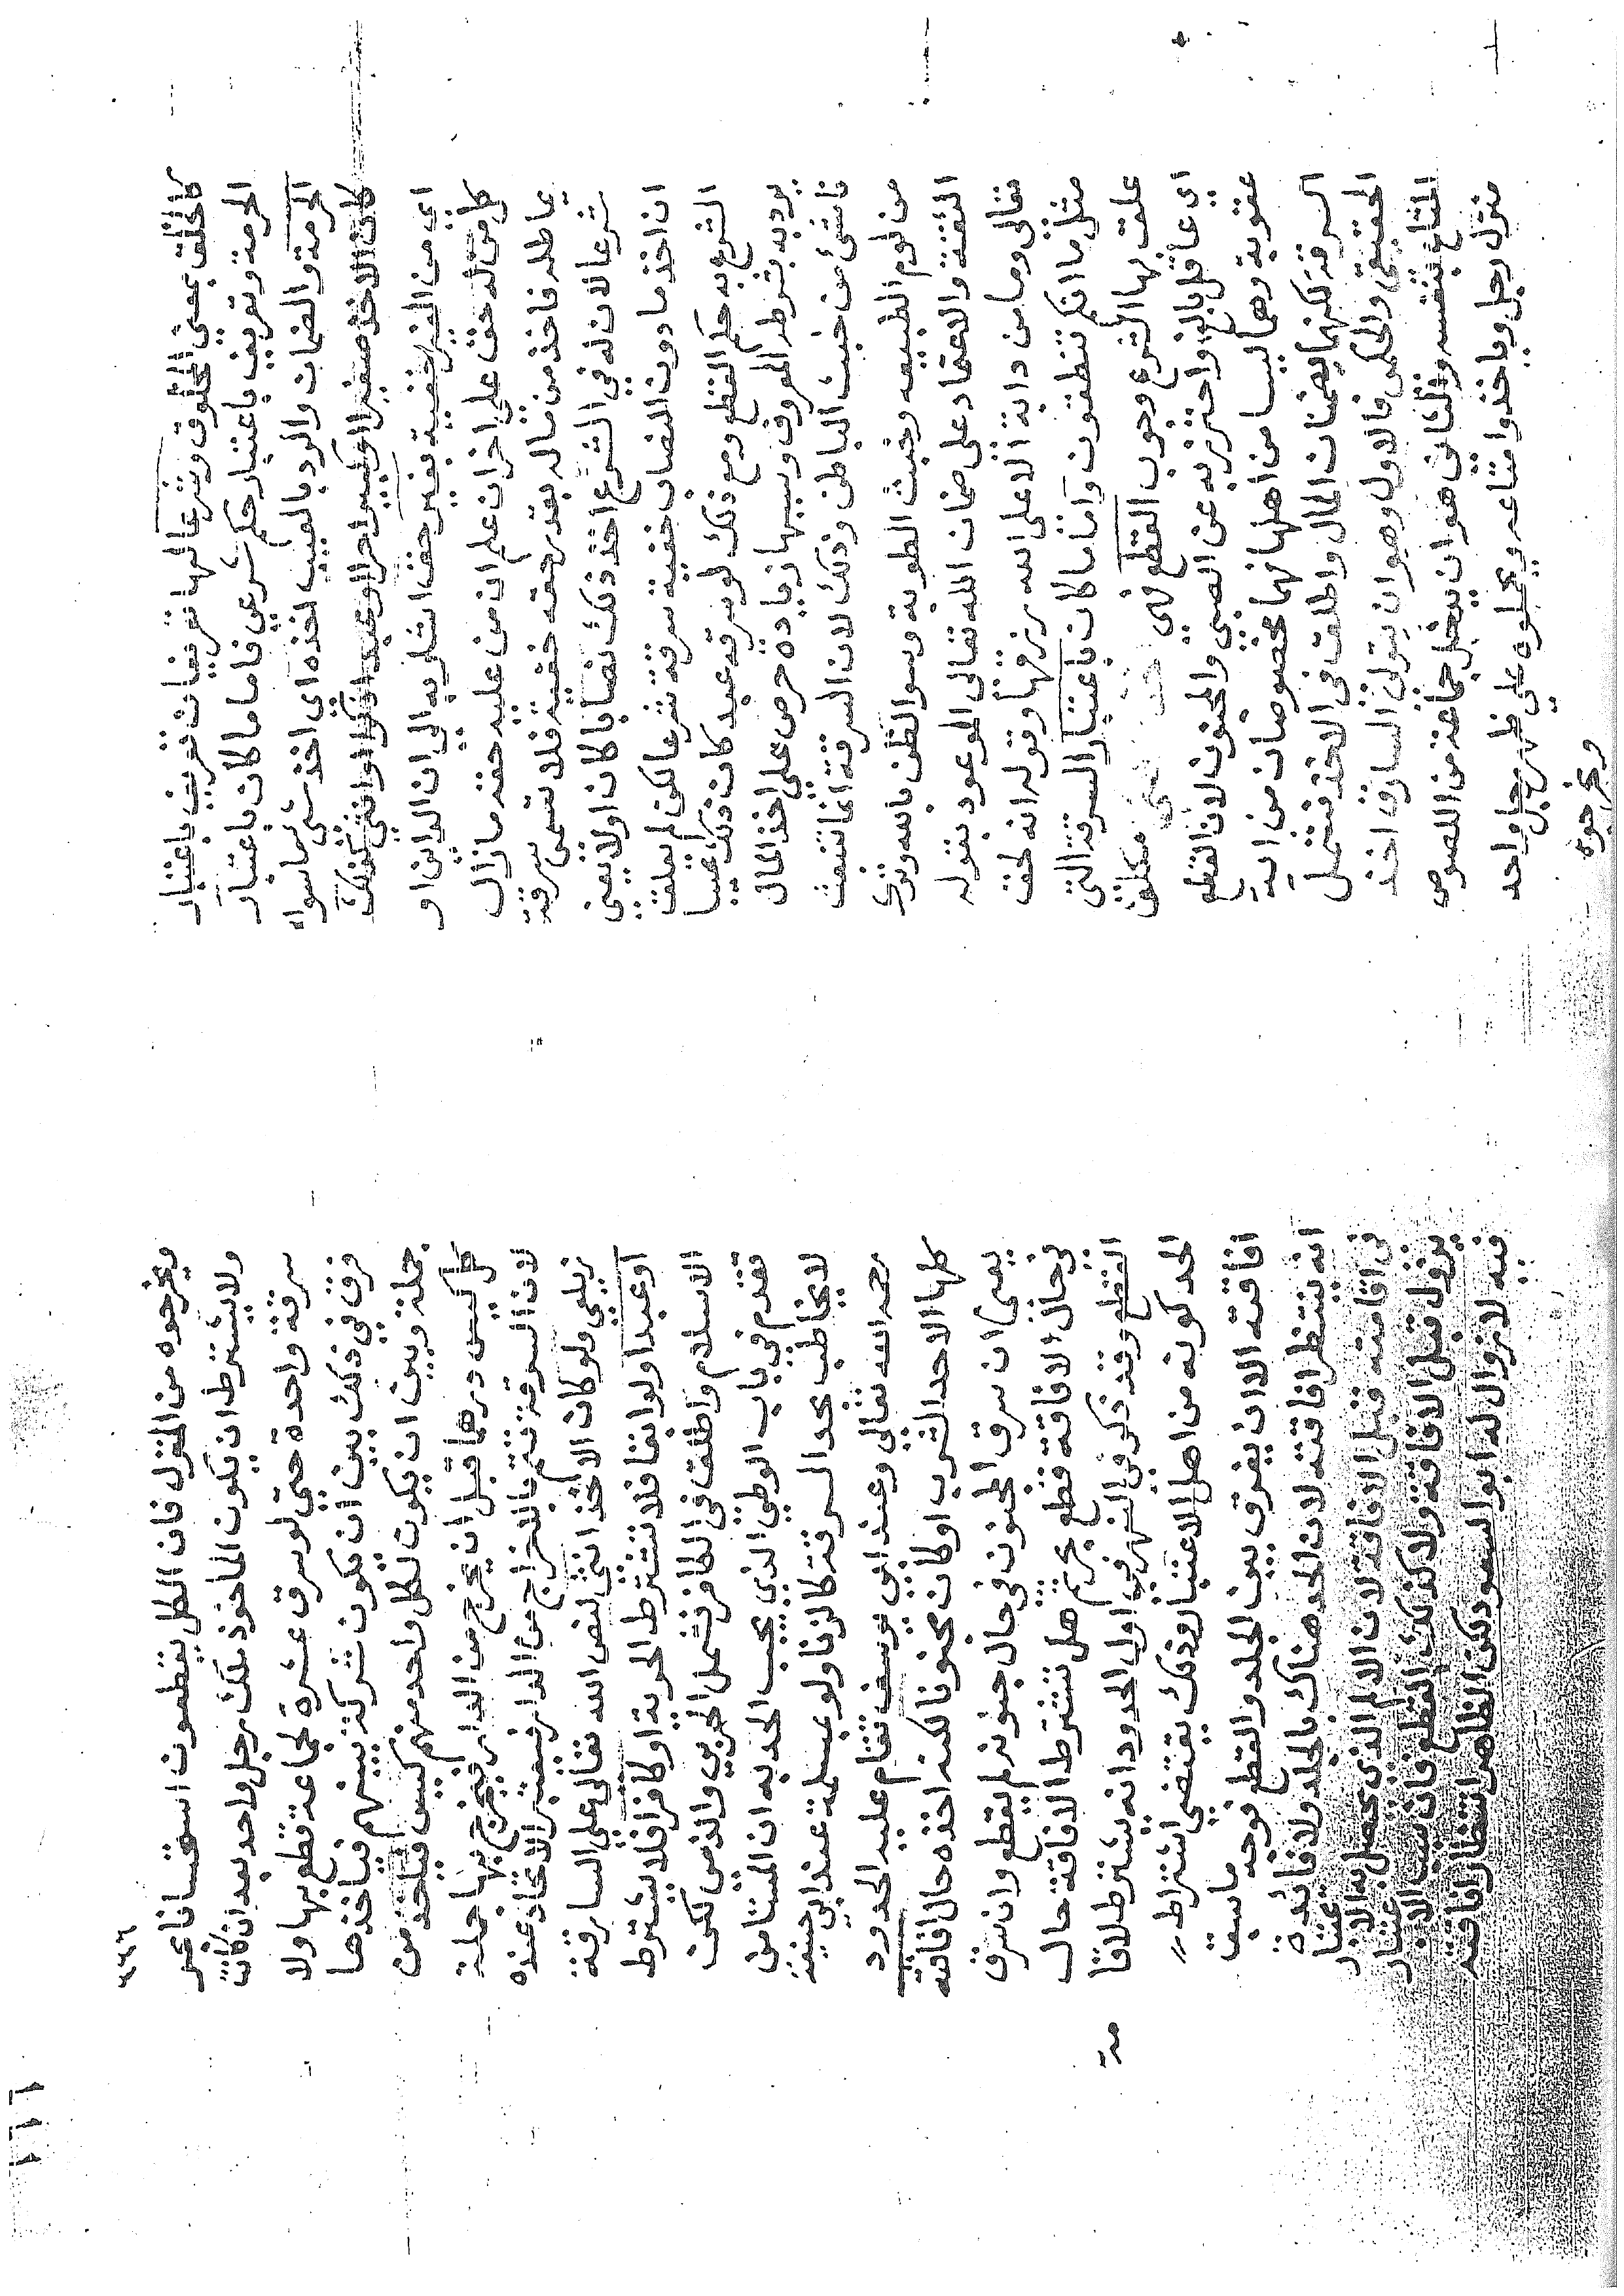 كالخلق بمعنى المخلوق وشرعا لها تعريفان تعريف باعتبار
الحرمة وتعريف باعتبار حكم شرعي فاما ما كان باعتبار
الحرمة والضمان والرد بالعيب اخذه اي اخذ شي ما سواء
كان الاخذ صغيرا او كبيرا حرا او عبدا ذكرا او انثى كذلك
اي من الغير خفية بغير حق اشار به الى ان الداين او
كل من له حق على اخر ان علم ان من عليه حقه ما زال
يماطله فاخذ من ماله بقدر حقه خفية فلا تسمى سرقة
شرعا لان له في الشرع اخذ ذلك نصابا كان اولا يعني
ان اخذ ما دون النصاب خفية سرقة شرعا لكن لم يعلق
الشرع به حكم القطع ومع ذلك لو سرقه عبد كان ذلك عيبا
يرد به بشرطه المعروف وسببها زيادة حرص على اخذ المال
ناشئ من خبث الباطن وذلك لان السرقة انما تنشئت
من لوم الطبيعه وخبث الطوية وسوء الظن بالله وترك
الثقة والاعتماد على ضمان الله تعالى الموعود بقوله
تعالى وما من دابة الا على الله رزقها وقوله انه لحق
مثل ما انكم تنطقون واما ما كان باعتبار السرقة التي
علق بها الشرع وجوب القطع فهي مكلف
اي عاقل بالغ واحترز به عن الصبي والمجنون لان القطع
عقوبة وهما ليسا من اهلها فهما مخصوصان من اية
السرقة لكنهما يضمنان المال واطلق في الاخذ فشمل
الحقيقي والحكمي فالاول وهو ان يتولى السارق اخذ
المتاع بنفسه والثاني هو ان يدخل جماعة من اللصوص
منزل رجل وياخذوا متاعه ويحملوه على ظهر رجل واحد
ويخرجوه
٢٢٦
ويخرجوه من المنزل فان الكل يقطعون استحسانا بحر
ولا يشترط ان يكون الماخوذ ملك رجل واحد بعد ان كان
سرقة واحدة حتى لو سرق عشرة لجماعة قطع بها ولا
فرق في ذلك بين ان يكون شركة بينهم فياخذها
جملة وبين ان يكون لكل واحد منهم كيس فياخذ من
كل كيس درهما قبل ان يخرج من الدار فيخرج بها جملة
لان السرقة تتم بالاخراج من الدار فيعتبر الاتحاد عنده
زيلعي ولو كان الاخذ انثى لنص الله تعالى على السارقة
او عبدا ولو ابقا فلا تشترط الحرية او كافرا فلا يشترط
الاسلام واطلق في الكافر فشمل الحربي والذمي لكن
تقدم في باب الوطي الذي يجب الحد به ان المستامن
لا يخاطب بحد السرقة كالزنا ولو بمسلمة عند ابي حنيفة
رحمه الله تعالى وعند ابي يوسف تقام عليه الحدود
كلها الا حد الشرب او كان مجنونا لكنه اخذه حال افاقته
يعني ان سرق المجنون في حال جنونه لم يقطع وان سرق
في حال الافاقة قطع بحر ثم هل تشترط الافاقة حال
القطع وقد ذكر في النهر في اول الحدود انه يشترط لاقا
مة
الحد كونه من اهل الاعتبار وذلك يقتضي اشتراطه
افاقته الا ان يفرق بين الجلد والقطع فوجه ما سبق
انه ينتظر افاقته لان الحد هناك بالجلد ولا فائدة
في اقامته قبل الافاقة لان الالم الذي يحصل به الانزجار
يزول قبل الافاقة ولا كذلك القطع فان سبب الاعتبار
فيه لا زوال له ابو السعود لكن الظاهر انتظار افاقته